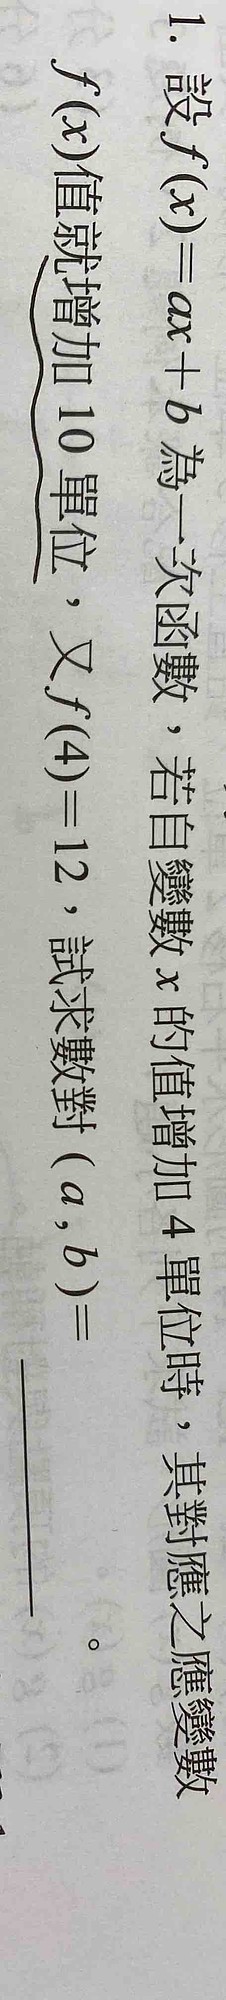 1. 設f(x)=ax+b為一次函數，若自變數x的值增加4單位時，其對應之應變數
f(x)值就增加10單位，又f(4)=12，試求數對(a,b)=＿＿＿＿＿。